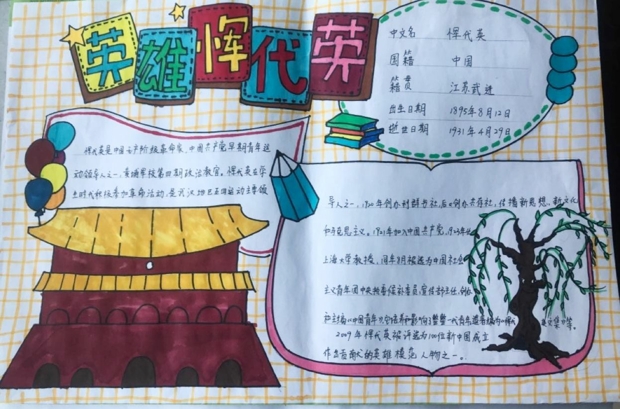 英雄恽代英
中文名 恽代英
国籍 中国
籍贯 江苏武进
出生日期 1895年8月12日
逝世日期 1931年4月29日
恽代英是中国无产阶级革命家、中国共产党早期青年运
动领导人之一,黄埔军校第四期政治教官。恽代英在学
生时代积极参加革命活动,是武汉地区五四运动主要领
导人之一,1920年创办利群书社,后又创办共存社,传播新思想、新文化
和马克思主义。1921年加入中国共产党,1923年任
上海大学教授,同年8月被选为中国社会
主义青年团中央执委候补委员,宣传部主任,创办
和主编《中国青年》,它培养和影响了整整一代青年
2009年恽代英被评选为100位新中国成立
作出突出贡献的英雄模范人物之一。